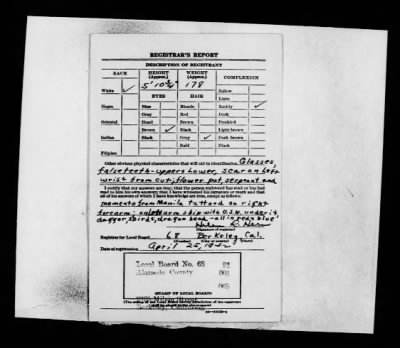 REGISTRAR'S REPORT
DESCRIPTION OF REGISTRANT
RACE HEIGHT (Approx.) WEIGHT (Approx.) COMPLEXION
White ✓ 5' 10¾" 178 Sallow
Light
EYES HAIR Ruddy ✓
Negro Blue Blonde Dark
Gray Red Freckled
Oriental Hazel Brown Light brown
Brown ✓ Black Dark brown
Indian Black Gray ✓ Black
Bald
Filipino
Other obvious physical characteristics that will aid in identification Glasses,
false teeth-upper & lower, scar on left
wrist from cut, flower pot, serpent and
I certify that my answers are true; that the person registered has read or has had
read to him his own answers; that I have witnessed his signature or mark and that
all of his answers of which I have knowledge are true, except as follows:
memento from Manila Tattooed on right
forearm; arm ship with U.S.N. under it,
dagger, 2 birds, dragon head-all in red & blue
(Signature of registrar)
Registrar for Local Board 68 Berkeley Cal.
(Number) (City or county) (State)
Date of registration April 25, 1942
Local Board No. 68
Alameda County
STAMP OF LOCAL BOARD